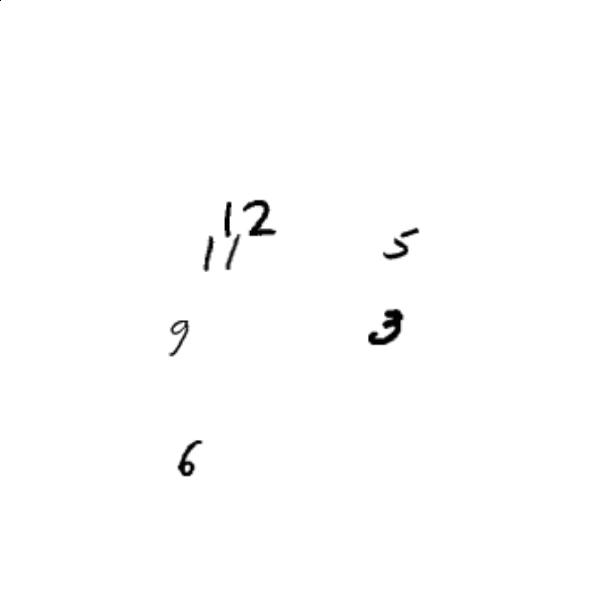 12
11 5
9 3
6